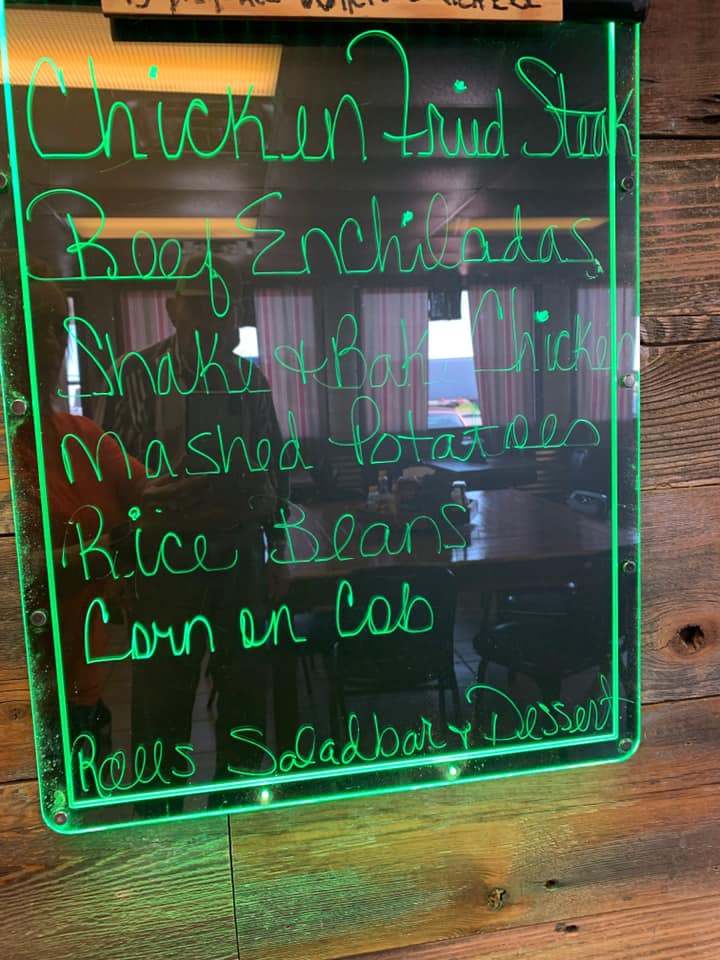 Chicken Fried Steak
Beef Enchiladas
Shake & Bake Chicken
Mashed Potatoes
Rice Beans
Corn on Cob
Rolls Saladbar & Dessert